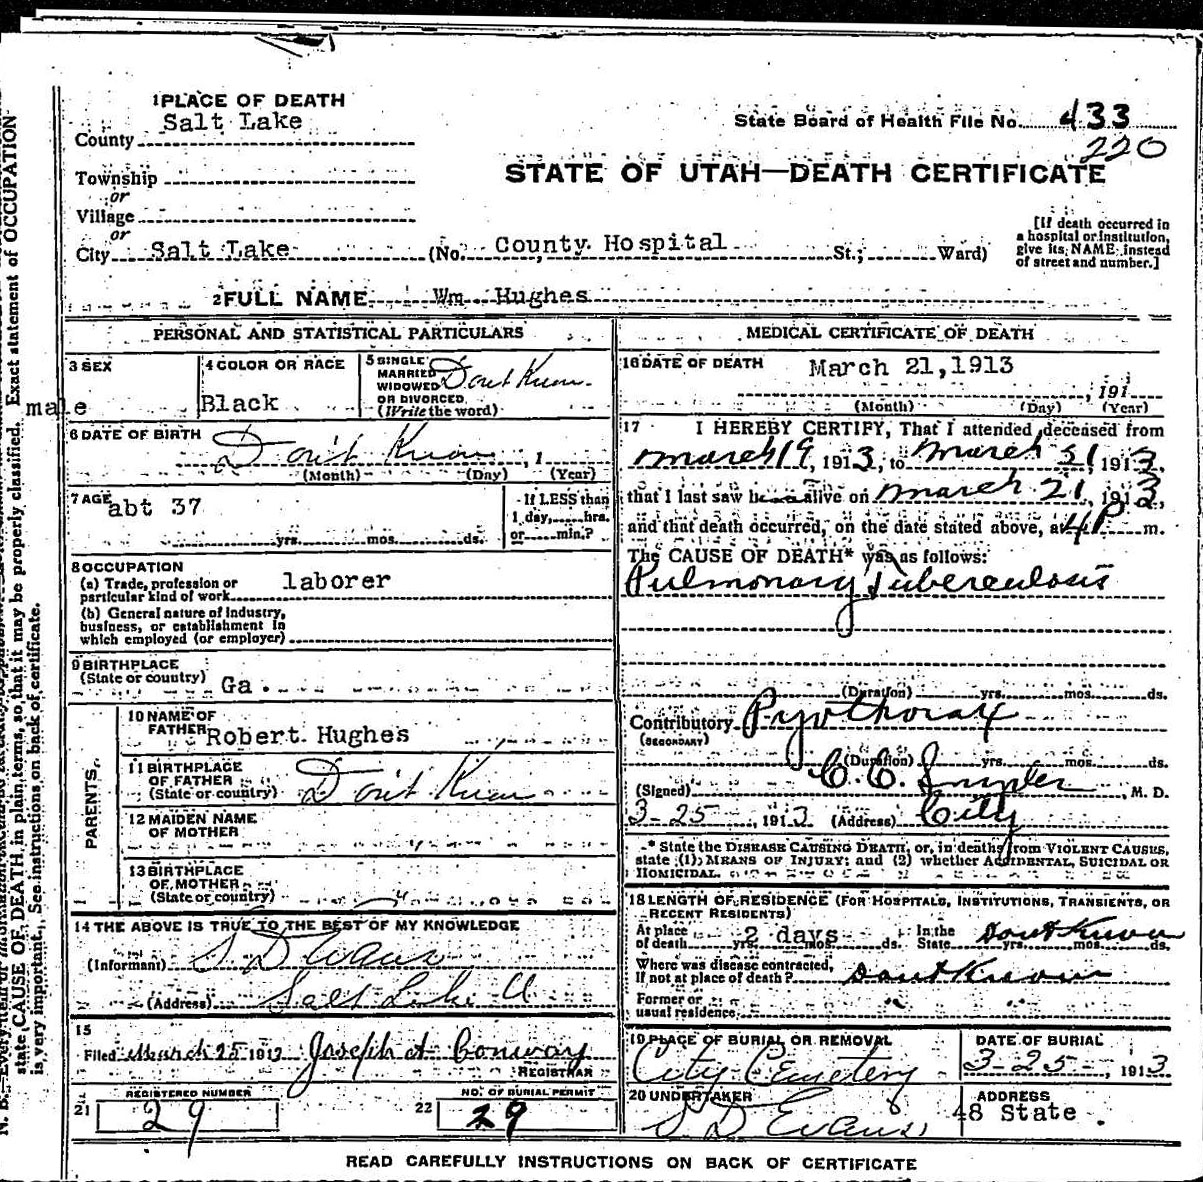 1 PLACE OF DEATH
County Salt Lake
State Board of Health File No. 433
220
Township
or
Village
or
STATE OF UTAH—DEATH CERTIFICATE
City Salt Lake (No. County Hospital St.; Ward)
[If death occurred in
a hospital or institution,
give its NAME instead
of street and number.]
2 FULL NAME Wm. Hughes
PERSONAL AND STATISTICAL PARTICULARS
3 SEX
male
4 COLOR OR RACE
Black
5 SINGLE
MARRIED
WIDOWED
OR DIVORCED
(Write the word)
Dont Know
6 DATE OF BIRTH
Don't Know, 1
(Month) (Day) (Year)
7 AGE
abt 37
yrs. mos. ds.
If LESS than
1 day, hrs.
or min.?
8 OCCUPATION
(a) Trade, profession or
particular kind of work laborer
(b) General nature of industry,
business, or establishment in
which employed (or employer)
9 BIRTHPLACE
(State or country) Ga.
PARENTS
10 NAME OF
FATHER Robert Hughes
11 BIRTHPLACE
OF FATHER
(State or country) Don't Know
12 MAIDEN NAME
OF MOTHER "
13 BIRTHPLACE
OF MOTHER
(State or country) "
14 THE ABOVE IS TRUE TO THE BEST OF MY KNOWLEDGE
(Informant) S D Evans
(Address) Salt Lake U
15
Filed March 25 1913 Joseph A Conway
REGISTRAR
REGISTERED NUMBER
21 29
NO. OF BURIAL PERMIT
22 29
MEDICAL CERTIFICATE OF DEATH
16 DATE OF DEATH March 21, 1913
, 191
(Month) (Day) (Year)
17 I HEREBY CERTIFY, That I attended deceased from
March 19, 1913, to March 21, 1913,
that I last saw h alive on March 21, 1913,
and that death occurred, on the date stated above, at 4 P m.
The CAUSE OF DEATH* was as follows:
Pulmonary Tuberculosis
(Duration) yrs. mos. ds.
Contributory Pyothorax
(SECONDARY)
(Duration) yrs. mos. ds.
(Signed) C. C. Snyder, M. D.
3-25, 1913 (Address) City
* State the DISEASE CAUSING DEATH, or, in deaths from VIOLENT CAUSES,
state (1) MEANS OF INJURY; and (2) whether ACCIDENTAL, SUICIDAL OR
HOMICIDAL.
18 LENGTH OF RESIDENCE (FOR HOSPITALS, INSTITUTIONS, TRANSIENTS, OR
RECENT RESIDENTS)
At place
of death yrs. 2 days mos. ds. In the
State yrs. mos. ds. Dont Know
Where was disease contracted,
if not at place of death? Dont Know
Former or
usual residence "
19 PLACE OF BURIAL OR REMOVAL
City Cemetery
DATE OF BURIAL
3-25-, 1913
20 UNDERTAKER
S D Evans
ADDRESS
48 State
READ CAREFULLY INSTRUCTIONS ON BACK OF CERTIFICATE
state CAUSE OF DEATH in plain terms, so that it may be properly classified. Exact statement of OCCUPATION
is very important. See instructions on back of certificate.